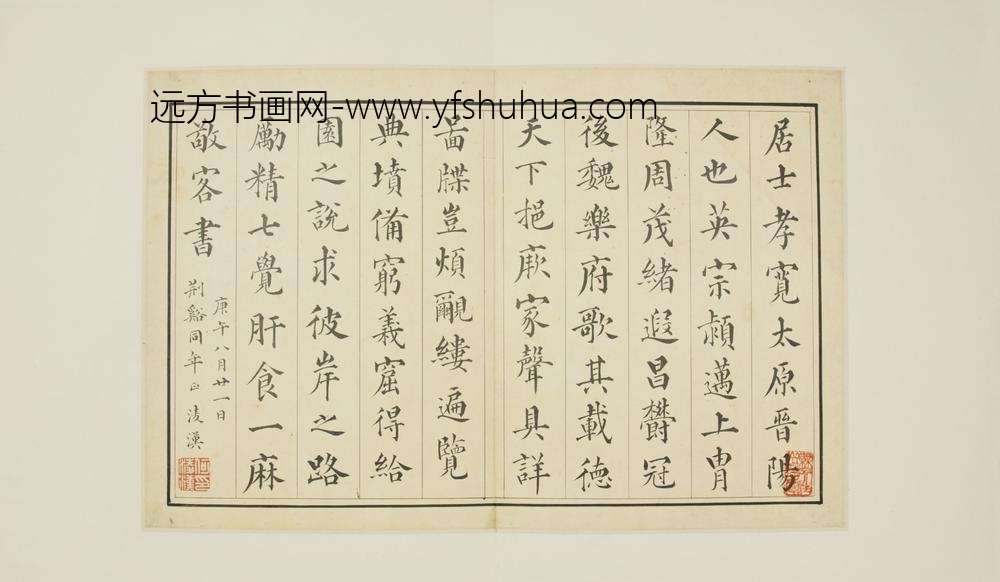 远方书画网-www.yfshuhua.com
居士孝寬太原晉陽
人也英宗潁邁上胄
隆周茂緒遐昌欝冠
後魏樂府歌其載德
天下挹厥家聲具詳
啚牒豈煩覼縷遍覽
典墳備窮義窟得給
園之說求彼岸之路
勵精七覺肝食一麻
敬客書
庚午八月廿一日
荆谿同年正 淩漢